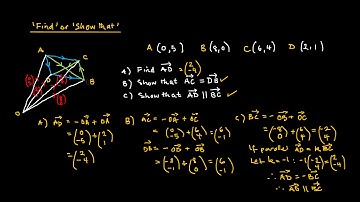 'Find' or 'Show that'
A (0,5) B (8,0) C (6,4) D (2,1)
A) Find AD = (2 -4)
B) Show that AC = DB ✓
C) Show that AD || BC ✓
A
C
D
B
O
A) AD = -OA + OD
= (0 -5) + (2 1)
= (2 -4)
B) AC = -OA + OC
= (0 -5) + (6 4) = (6 -1)
DB = -OD + OB
= (-2 -1) + (8 0) = (6 -1)
C) BC = -OB + OC
= (-8 0) + (6 4) = (-2 4)
If parallel AD = k BC
Let k = -1 : -1(-2 4) = (2 -4)
∴ AD = -BC
∴ AD || BC